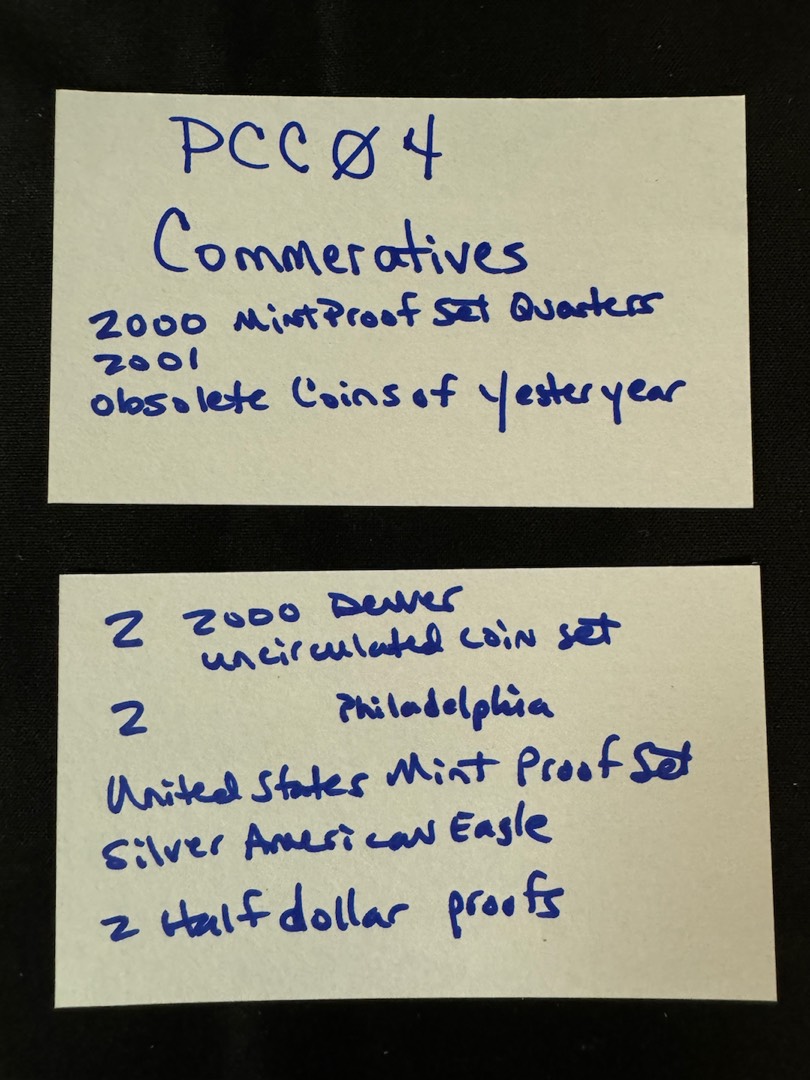 PCCØ4
Commeratives
2000 Mint Proof Set Quarters
2001
Obsolete Coins of Yesteryear
2 2000 Denver
uncirculated coin set
2 Philadelphia
United States Mint Proof Set
Silver American Eagle
2 Half dollar proofs